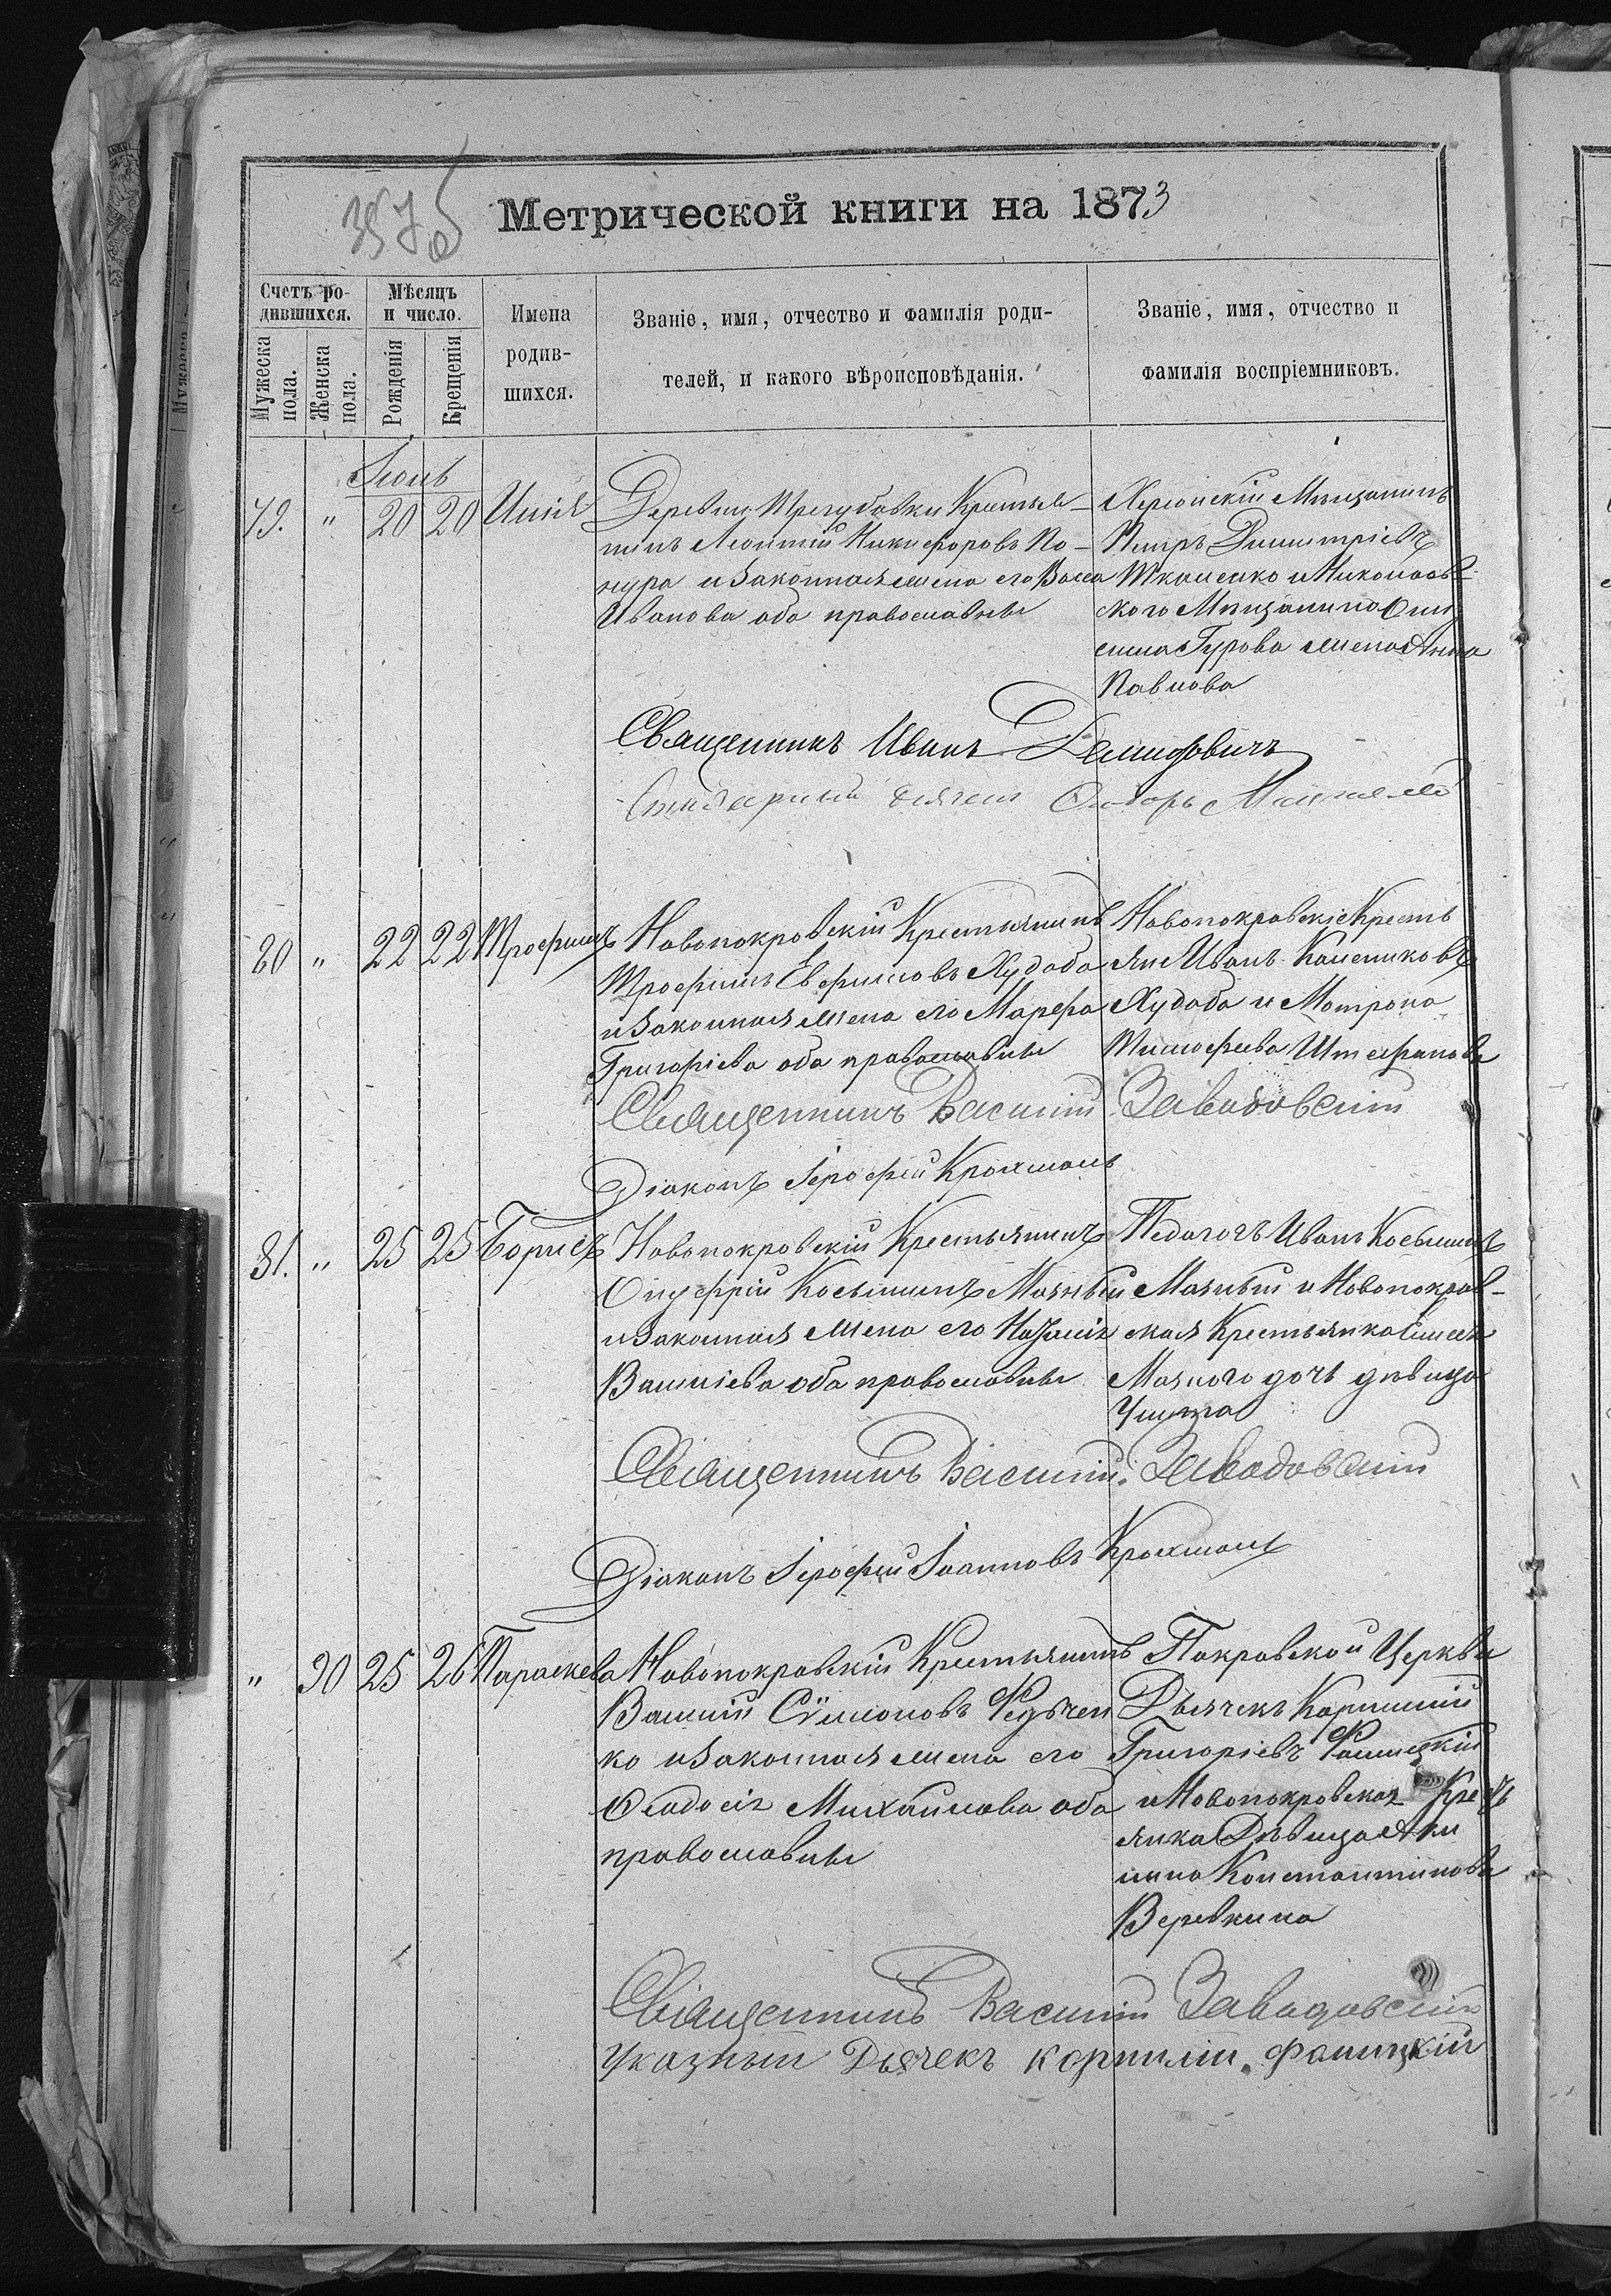 357 об
Метрической книги на 1873
Счетъ ро-
дившихся.
Мѣсяцъ
и число.
Мужеска
пола.
Женска
пола.
Рожденія
Крещенія
Имена
родив-
шихся.
Званіе, имя, отчество и фамилія роди-
телей, и какого вѣроисповѣданія.
Званіе, имя, отчество и
фамилія воспріемниковъ.
Іюль
79. " 20 20 Илія
Деревни Трегубовки Крестья-
нинъ Леонтій Никифоровъ По-
нура и законная жена его Васса
Иванова оба православные
Херсонскій Мѣщанинъ
Петръ Димитріевъ
Ткаченко и Николаев-
ского Мѣщанина Они
сима Гурова жена Анна
Павлова
Священникъ Иванъ Демидовичъ
80 " 22 22 Трофимъ
Новопокровскій Крестьянинъ
Трофимъ Евфимовъ Худоба
и законная жена его Марфа
Григоріева оба православные
Новопокровскіе Кресть
яне Иванъ Калениковъ
Худоба и Матрона
Тимофеева Штефанова
Священникъ Василій Заводовскій
Діаконъ Іерофей Крохмаль
81. " 25 25 Борисъ
Новопокровскій Крестьянинъ
Онуфрій Косьминъ Маяный
и законная жена его Наталія
Василіева оба православные
Педагогъ Иванъ Косьминъ
Маяный и Новопокров-
ская Крестьянка
Маяного дочь дѣвица
Священникъ Василій Заводовскій
Діаконъ Іерофей Іоанновъ Крохмаль
" 90 25 26 Параскева
Новопокровскій Крестьянинъ
Василій Сѵмоновъ Федьчен
ко и законная жена его
Феодосія Михайлова оба
православные
Покровской Церкви
Дьячекъ Корнилій
Григоріевъ Фалицкій
и Новопокровская Кресть
янка Дѣвица Аки
лина Константинова
Веревкина
Священникъ Василій Заводовскій
Указный Дьячекъ Корнилій Фалицкій